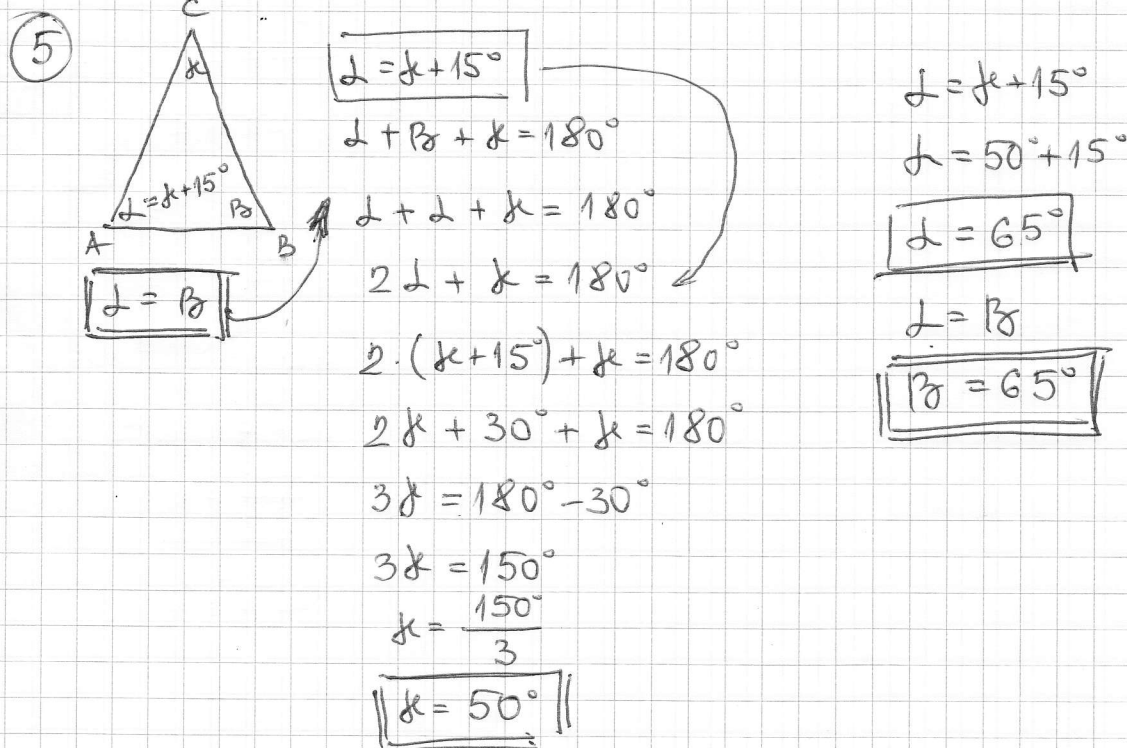 5
C
γ
α=γ+15°
β
A
B
α = β
α = γ+15°
α + β + γ = 180°
α + α + γ = 180°
2α + γ = 180°
2·(γ+15°)+γ = 180°
2γ + 30° + γ = 180°
3γ = 180° - 30°
3γ = 150°
γ = 150°/3
γ = 50°
α = γ+15°
α = 50°+15°
α = 65°
α = β
β = 65°